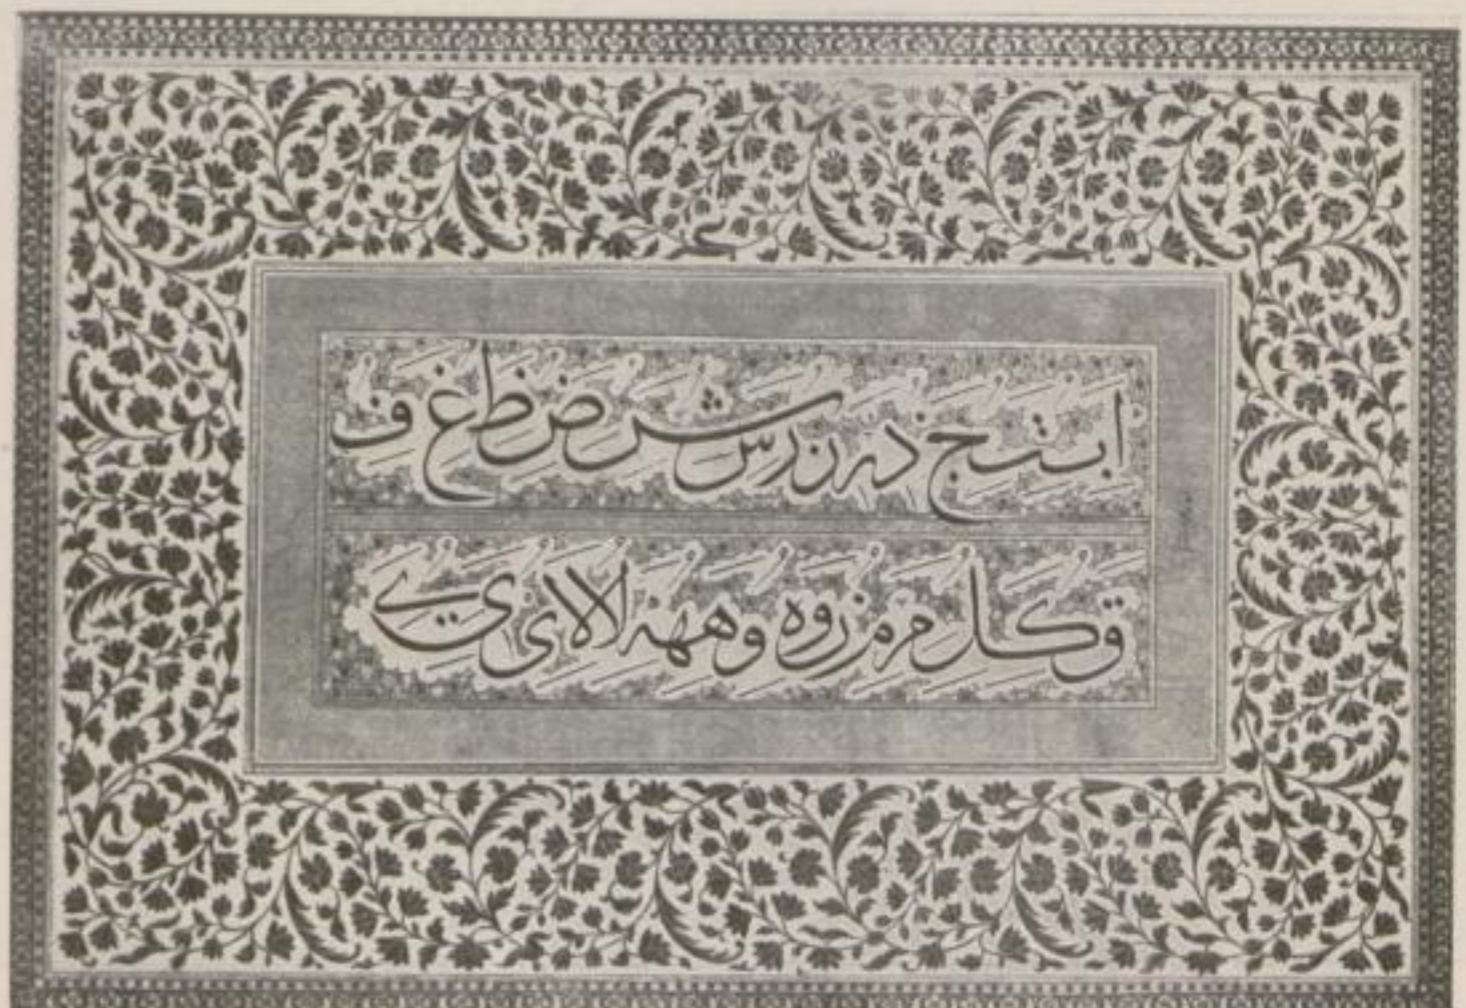 ا بتج د ذ ر ز س ش ص ض ط ظ ع ف
ق ک ل م ن و ه و هه لا لا ی ی ے